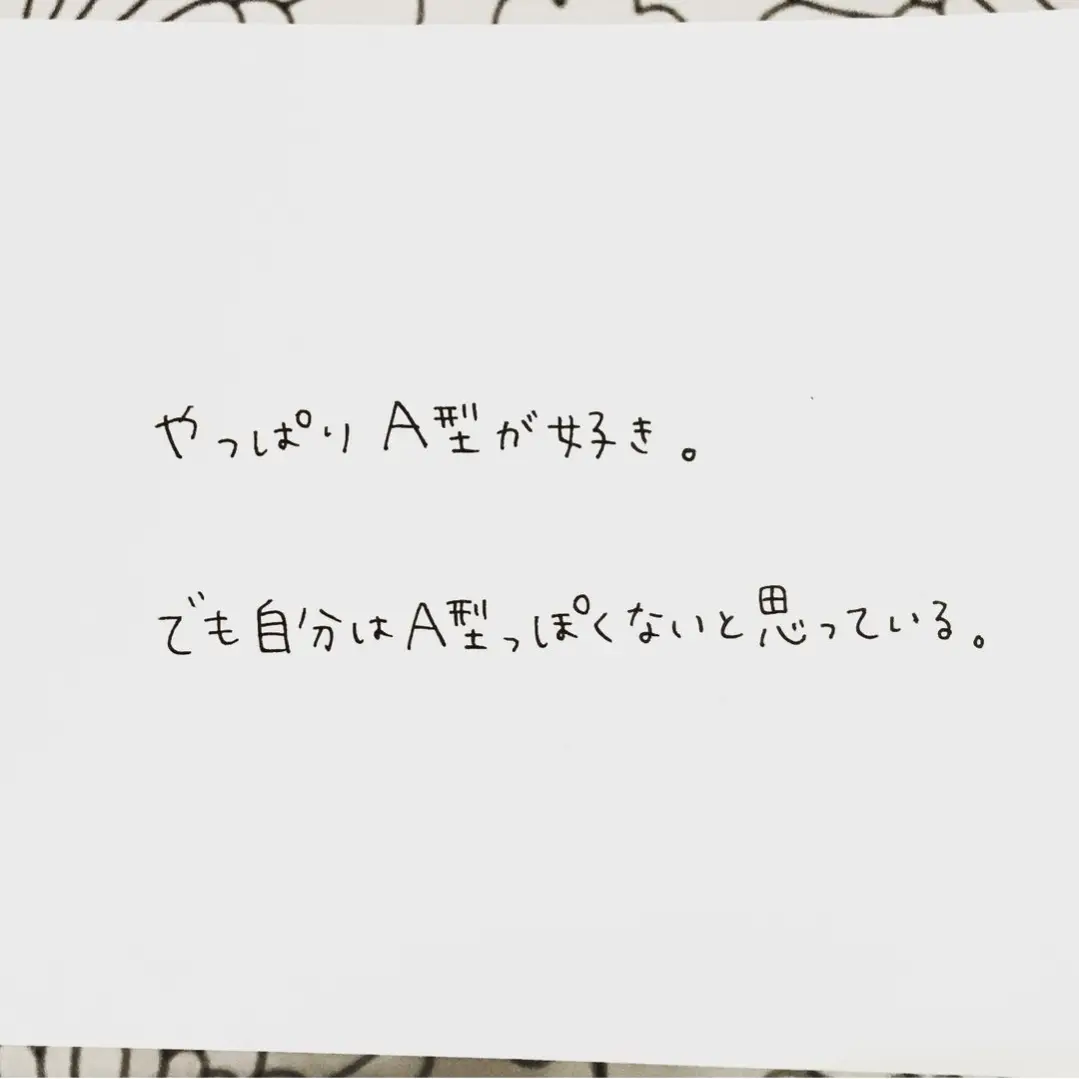 やっぱりA型が好き。
でも自分はA型っぽくないと思っている。